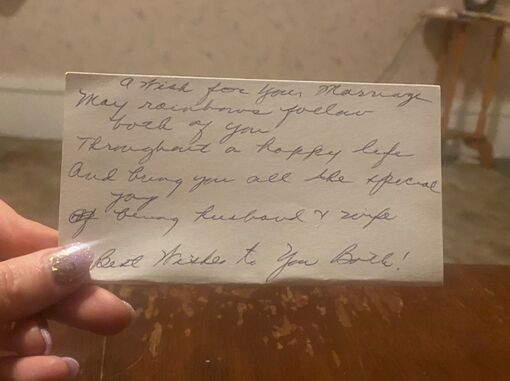 A Wish for Your Marriage
May rainbows follow
both of you
Throughout a happy life
And bring you all the special
joy
Of being husband & wife
Best Wishes to You Both!